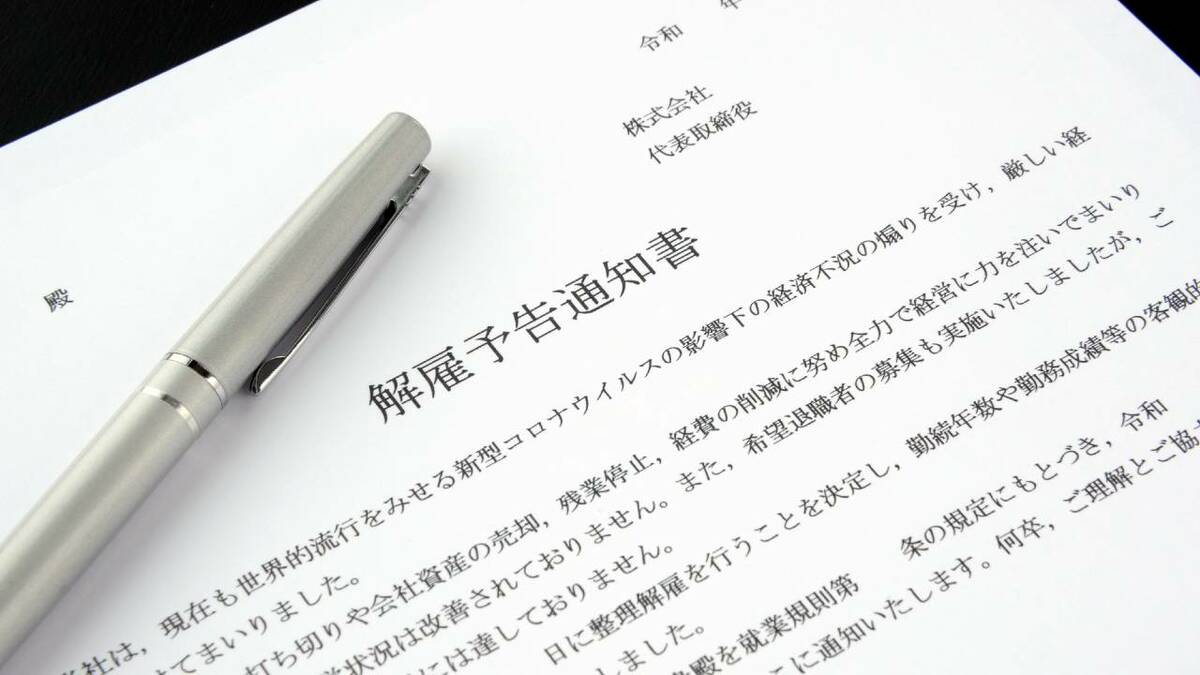 令和　年
株式会社
代表取締役
殿
解雇予告通知書
社は，現在も世界的流行をみせる新型コロナウイルスの影響下の経済不況の煽りを受け，厳しい経
てまいりました。
打ち切りや会社資産の売却，残業停止，経費の削減に努め全力で経営に力を注いでまいり
状況は改善されておりません。また，希望退職者の募集も実施いたしましたが，ご
には達しておりません。
日に整理解雇を行うことを決定し，勤続年数や勤務成績等の客観的
しました。
殿を就業規則第　　条の規定にもとづき，令和
に通知いたします。何卒，ご理解とご協